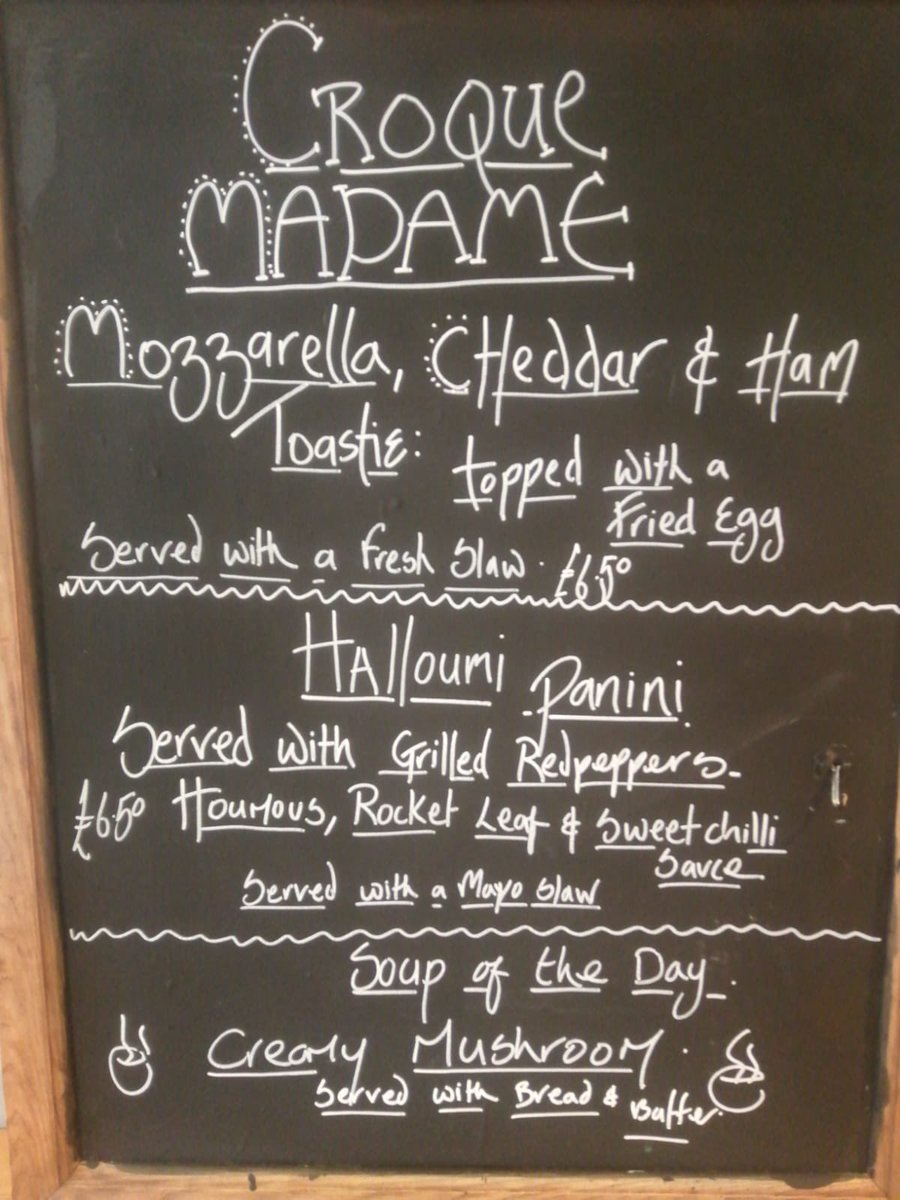 CROQUE
MADAME
Mozzarella, CHeddar & Ham
Toastie: topped with a
Fried Egg
Served with a fresh slaw. £6.50
HAlloumi Panini
Served with Grilled Redpeppers.
£6.50 Houmous, Rocket Leaf & Sweet chilli
Sauce
Served with a Mayo Slaw
Soup of the Day.
Creamy Mushroom.
Served with Bread &
Butter.